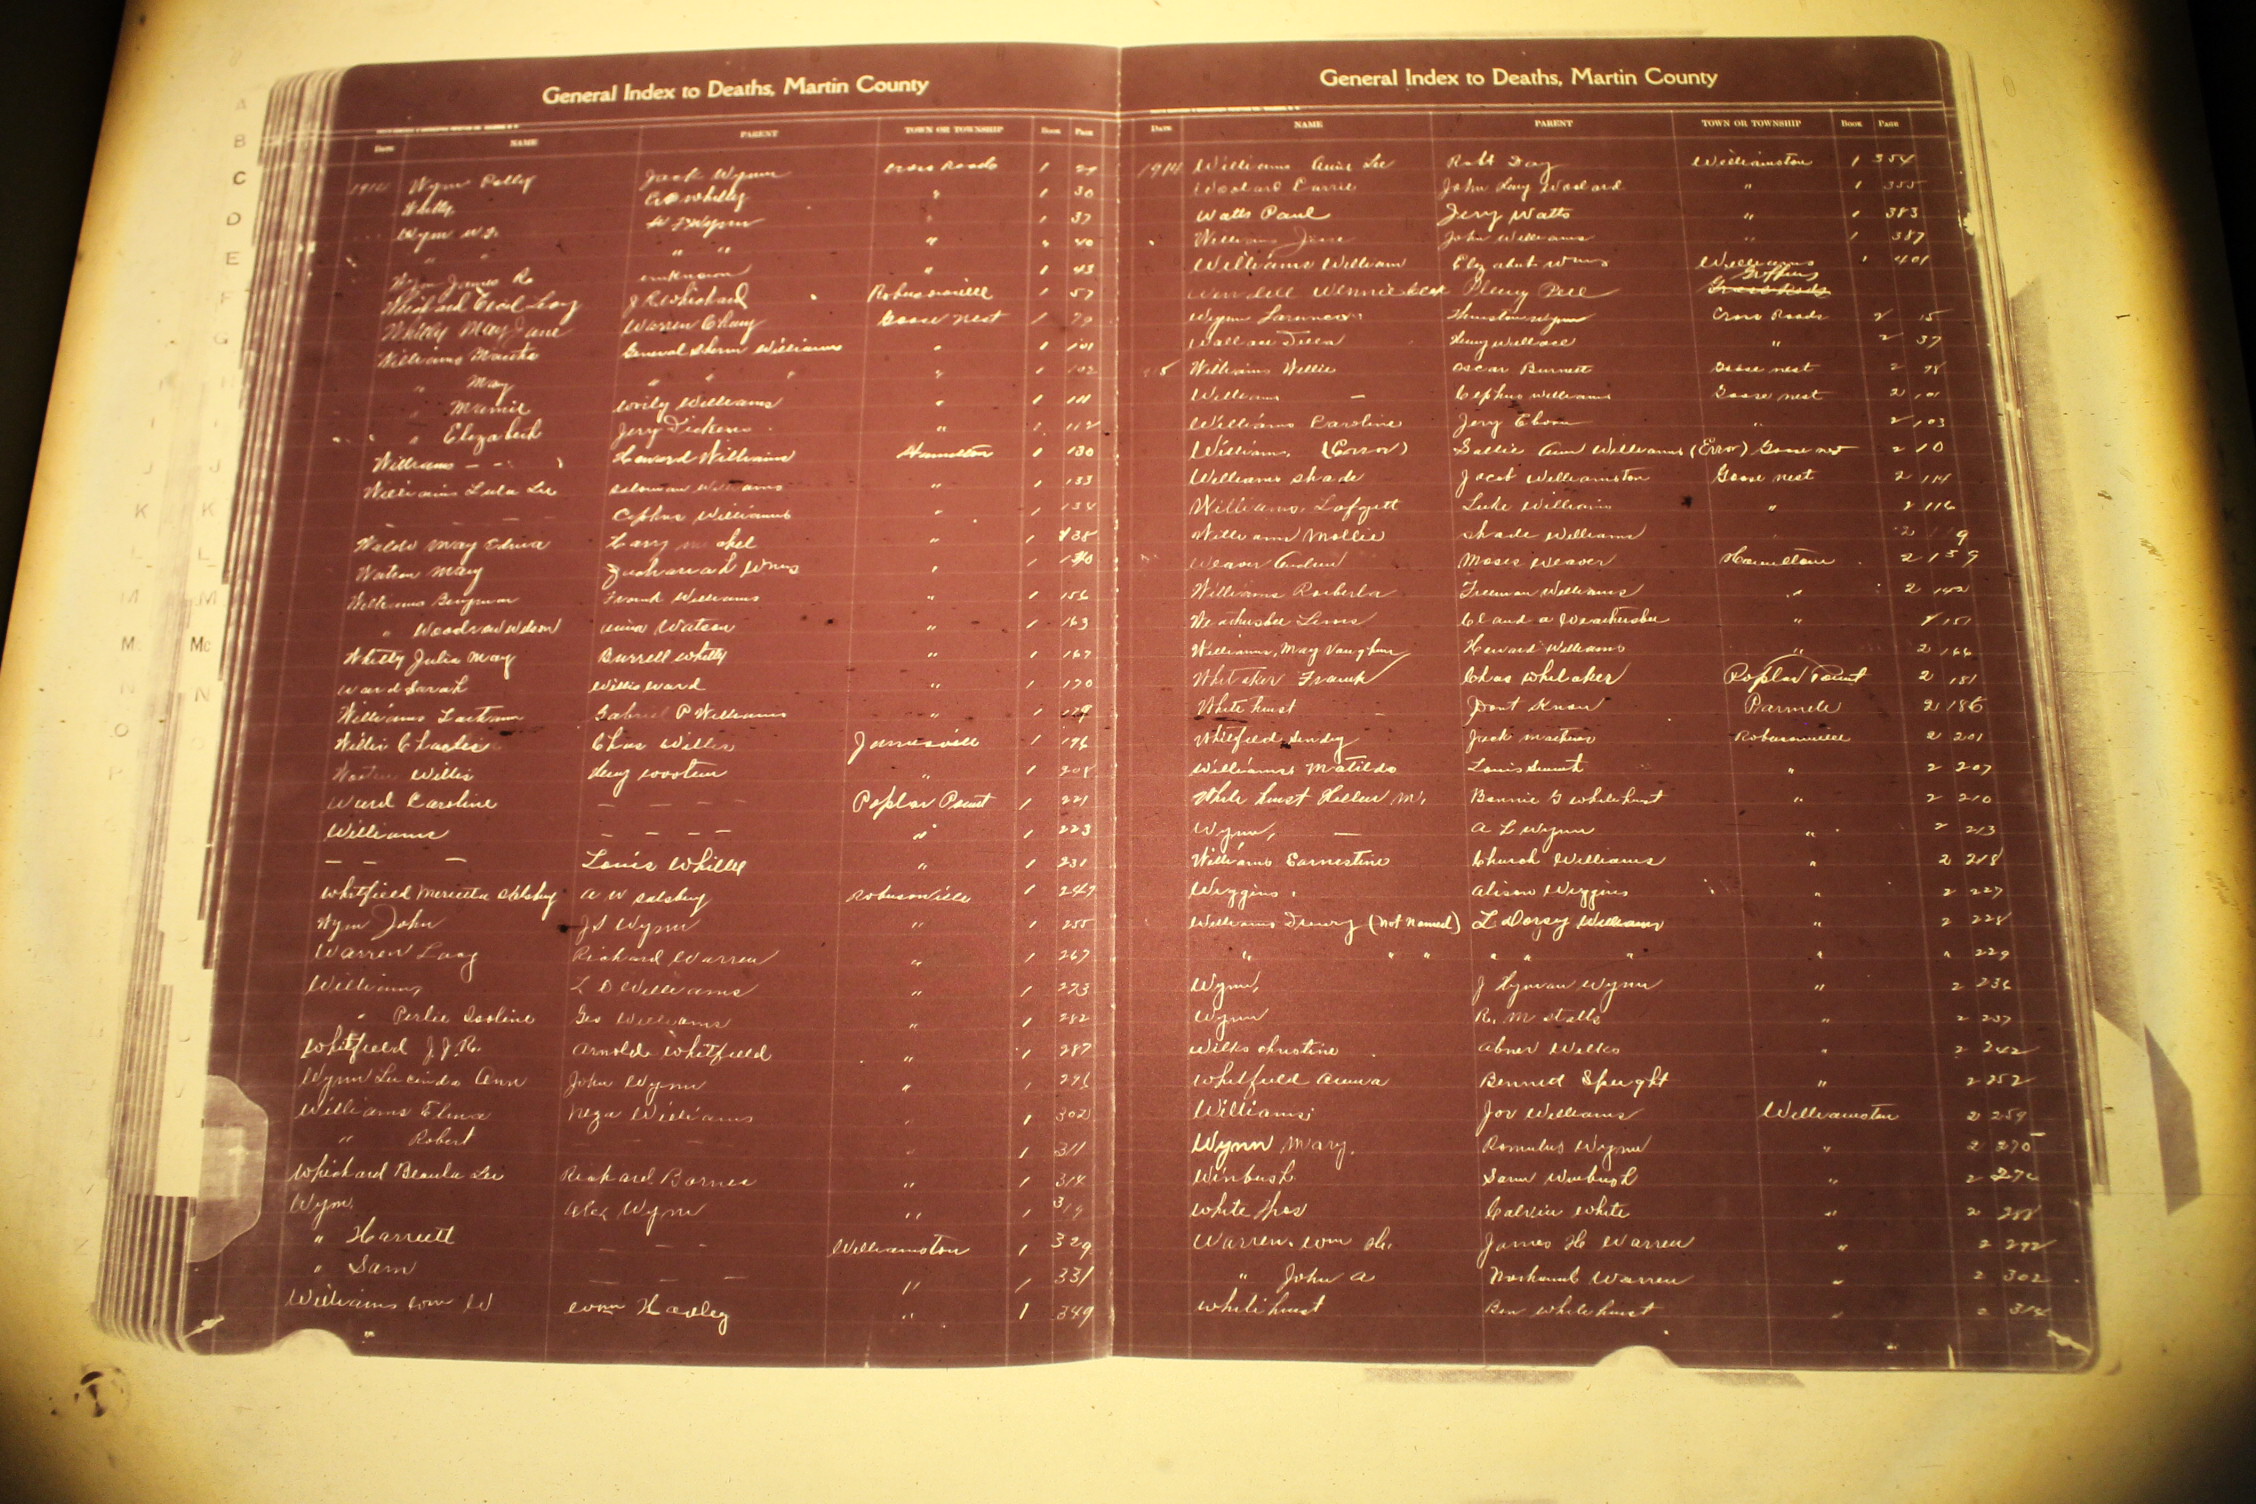 General Index to Deaths, Martin County
Date NAME PARENT TOWN OR TOWNSHIP Book Page
1914 Wynn Polly Jack Wynn Cross Roads 1 29
Whitly Whitly " 1 30
Wynn W. J. Wynn " 1 37
" " " " " " 40
Wynn James R. unknown " 1 43
Whichard J R Whichard Robersonville 1 57
Whitly May Jane Warren Goose nest 1 79
Williams Martha General Williams " 1 101
" May " " " " 1 102
" Mamie Wily Williams " 1 111
" Elizabeth Jerry Dickens " 1 112
Williams - - Howard Williams Hamilton 1 130
Williams Lula Lee Soloman Williams " 1 133
Cephus Williams " 1 134
Waldo May Edna Harry " 1 138
Watson May Wms " 1 140
Williams Benjman Frank Williams " 1 156
" Woodrow Wilson Watson " 1 163
Whitly Julia May Burrell Whitly " 1 167
Ward Sarah Willis Ward " 1 170
Williams Gabriel P Williams " 1 179
Willis Charles Chas Willis Jamesville 1 196
Willis Wooten " 1 208
Ward Caroline - - - - Poplar Point 1 221
Williams - - - - " 1 223
- - - Louis Whitly " 1 231
Whitfield Salsbury A W Salsbury Robersonville 1 247
Wynn John J S Wynn " 1 255
Warren Richard Warren " 1 267
Williams L D Williams " 1 273
" Perlie Isoline Geo Williams " 1 282
Whitfield J. J. R. Arnold Whitfield " 1 287
Wynn Lucinda Ann John Wynn " 1 296
Williams Williams " 1 302
" Robert - - - " 1 311
Whichard Beaula Lee Richard Barnes " 1 314
Wynn Alex Wynn " 1 319
" Harriett - - - Williamston 1 329
" Sam - - - " 1 331
Williams Wm W Harley " 1 349
General Index to Deaths, Martin County
Date NAME PARENT TOWN OR TOWNSHIP Book Page
1914 Williams Annie Lee Robt Day Williamston 1 354
Woolard Carrie John Woolard " 1 355
Watts Paul Jerry Watts " 1 383
Williams Jesse John Williams " 1 387
Williams William Elizabeth Wms Williams 1 401
Griffins
Wynn Wynn Cross Roads 2 15
Wallace Wallace " 2 37
5 Williams Willie Oscar Burnett Goose nest 2 98
Williams - Cephus Williams Goose nest 2 101
Williams Caroline Jerry " 2 103
Williams, (Error) Sallie Ann Williams (Error) Goose nest 2 10
Williams Shade Jacob Williamston Goose nest 2 114
Williams, Lafyett Luke Williams " 2 116
William Mollie Shade Williams 2 119
Weaver Moses Weaver Hamilton 2 139
Williams Roiberta Freeman Williams " 2 142
Weathersbee Claud a Weathersbee " 151
Williams, May Vaughn Howard Williams " 2 166
Whitaker Frank Chas Whitaker Poplar Point 2 181
White hurst - Dont Know Parmele 2 186
Whitfield Jack Robersonville 2 201
Williams Matilda Louis " 2 207
White hurst M. Bennie G Whitehurst " 2 210
Wynn, - A L Wynn " 2 213
Williams Earnestine Church Williams " 2 218
Wiggins. Alison Wiggins " 2 227
Williams (Not Named) L Dorsey Williams " 2 228
" " " " " " " " 229
Wynn, J Hyman Wynn " 2 236
Wynn R. M Stalls " 2 237
Wilks Christine Abner Wilks " 2 242
Whitfield Anna Spught " 2 252
Williams; Joe Williams Williamston 2 259
Wynn Mary. Romulus Wynn " 2 270
Winbush Sam Winbush " 2 276
White Thos Calvin White " 2 288
Warren. Wm H. James H Warren " 2 292
" John A Warren " 2 302
Whitehurst Ben Whitehurst " 2 314
A
B
C
D
E
F
G
H
I
J
K
L
M
Mc
N
O
P
J
K
L
M
Mc
N